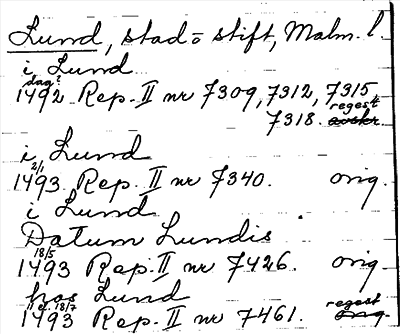 Lund, stad o stift, Malm. l.
i Lund
dag?
1492 Rep. II nr 7309, 7312, 7315
regest
7318. avskr.
i Lund
2/1
1493 Rep. II nr 7340. orig.
i Lund
Datum Lundis
18/5
1493 Rep. II nr 7426. orig
hos Lund
e. 18/7 regest
1493 Rep. II nr 7461. orig